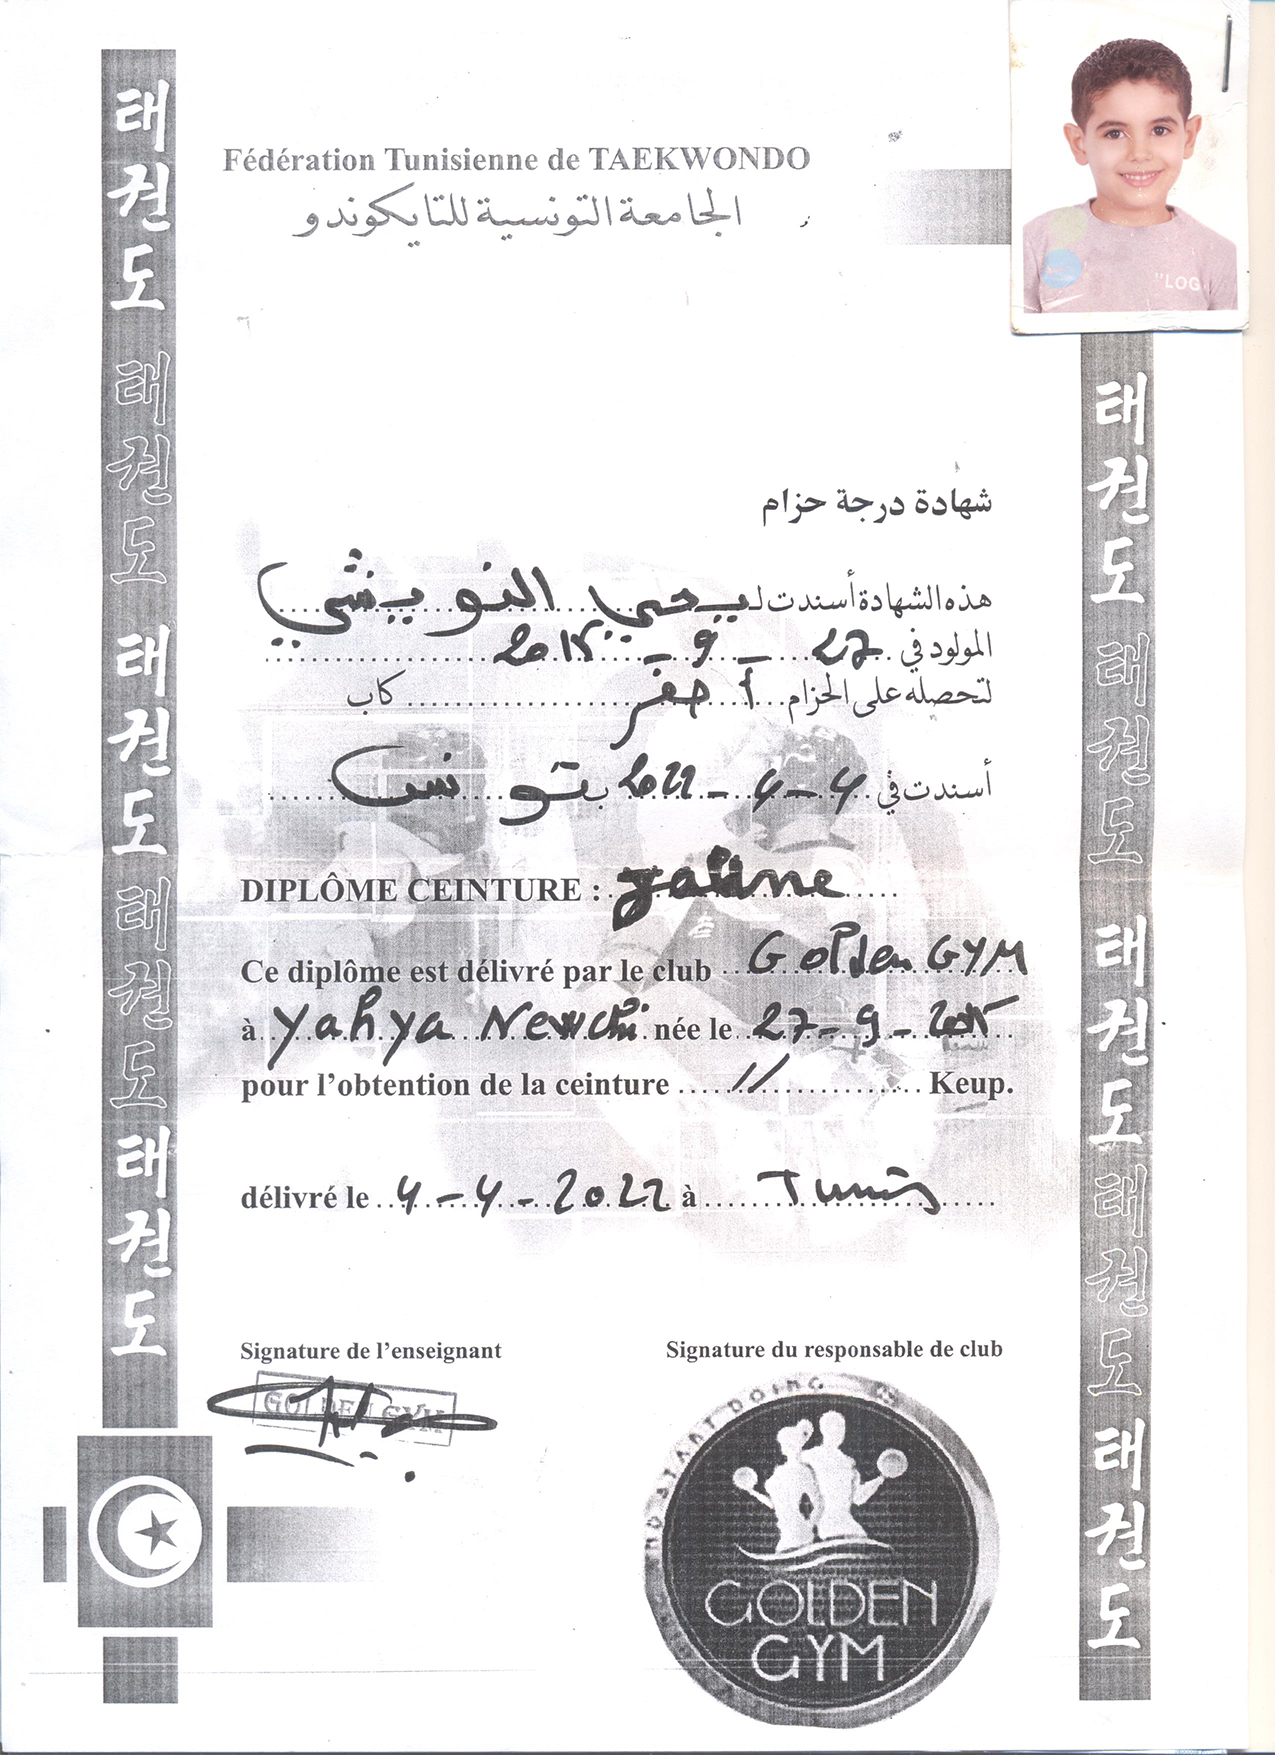 태권도 태권도 태권도 태권도 태권도
Fédération Tunisienne de TAEKWONDO
الجامعة التونسية للتايكوندو
"LOG
شهادة درجة حزام
هذه الشهادة أسندت لـ يحيى النويشي
المولود في 27 - 9 - 2015
لتحصله على الحزام أصفر كاب
أسندت في 4 - 4 - 2022 بتونس
DIPLÔME CEINTURE : jaune
Ce diplôme est délivré par le club Golden GYM
à Yahya Newchi née le 27 - 9 - 2015
pour l'obtention de la ceinture // Keup.
délivré le 4 - 4 - 2022 à Tunis
Signature de l'enseignant
Signature du responsable de club
GOLDEN GYM
START DOING
GOLDEN
GYM
태권도 태권도 태권도 태권도 태권도